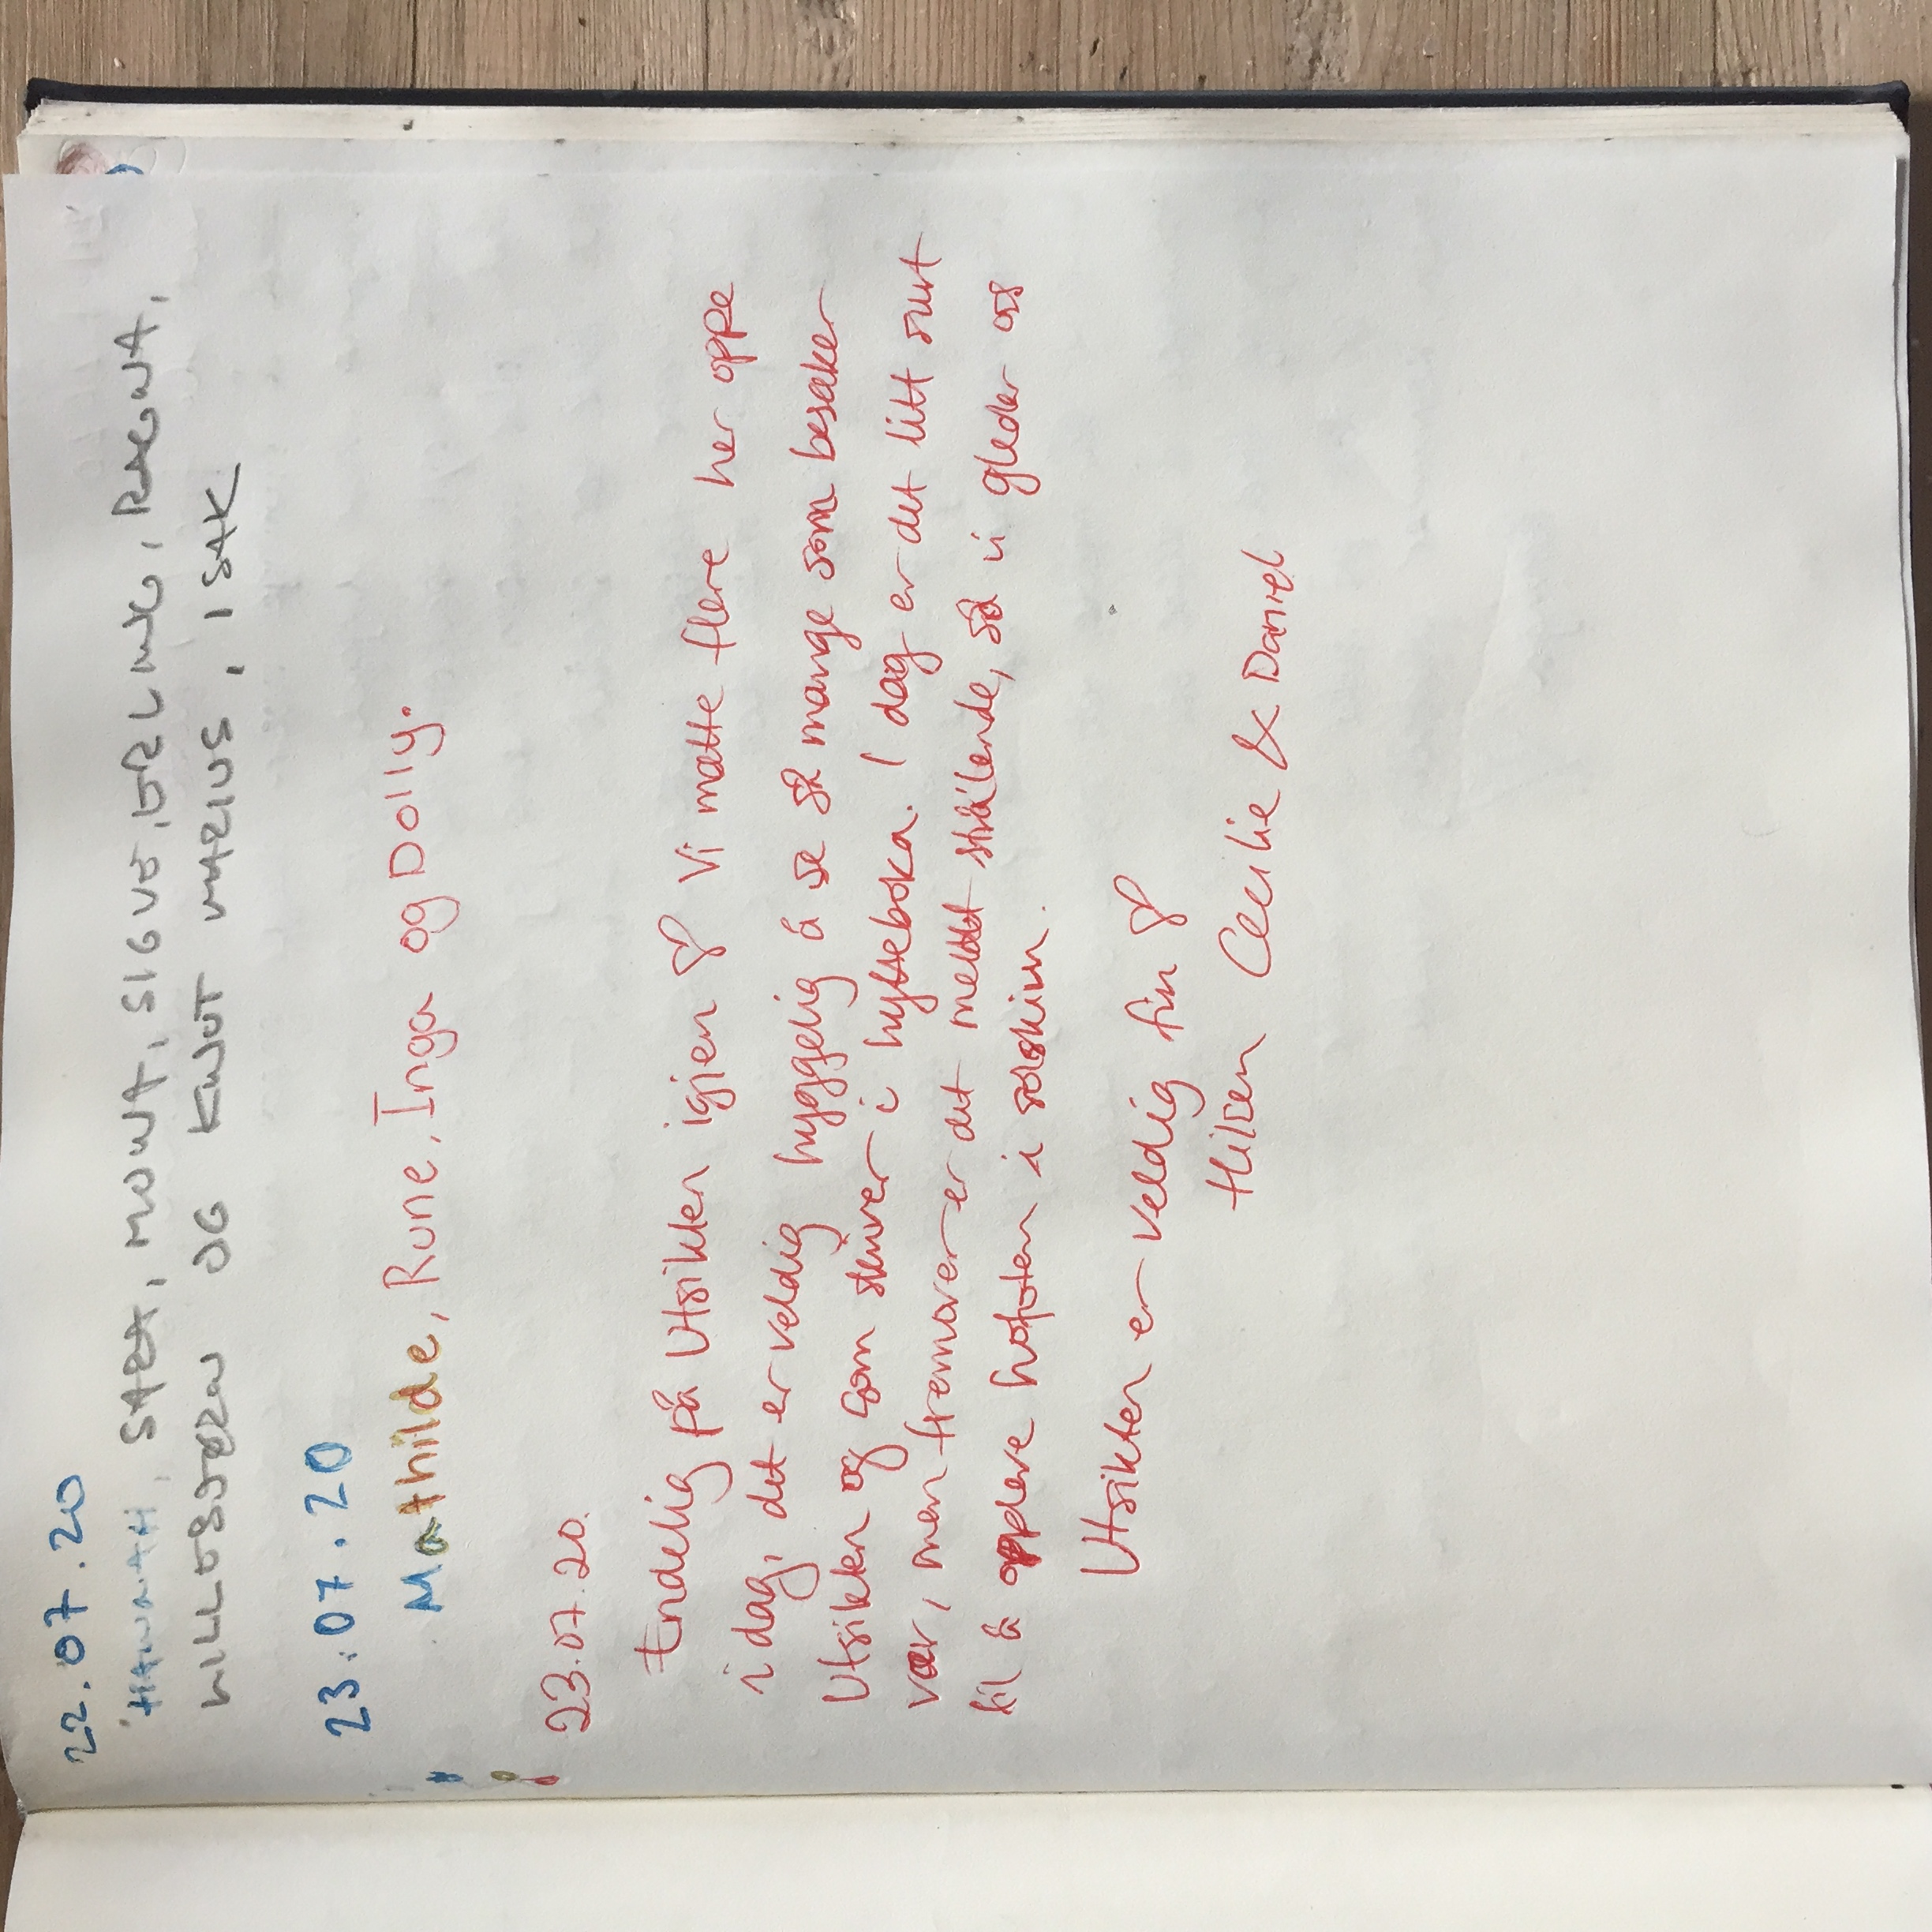 22.07.20
HANNAH, SARA, MONA, SIGVE, ERLING, RAGNA,
OG KNUT MARIUS, ISAK
23.07.20
Mathilde, Rune, Inga og Dolly.
23.07.20.
Endelig på Utsikten igjen Vi møtte flere her oppe
i dag, det er veldig hyggelig å se så mange som besøker
Utsikten og som skriver i hytteboka. I dag er det litt surt
vær, men fremover er det meldt strålende, så vi gleder oss
til å oppleve Lofoten i solskinn.
Utsikten er veldig fin
Hilsen Cecilie & Daniel